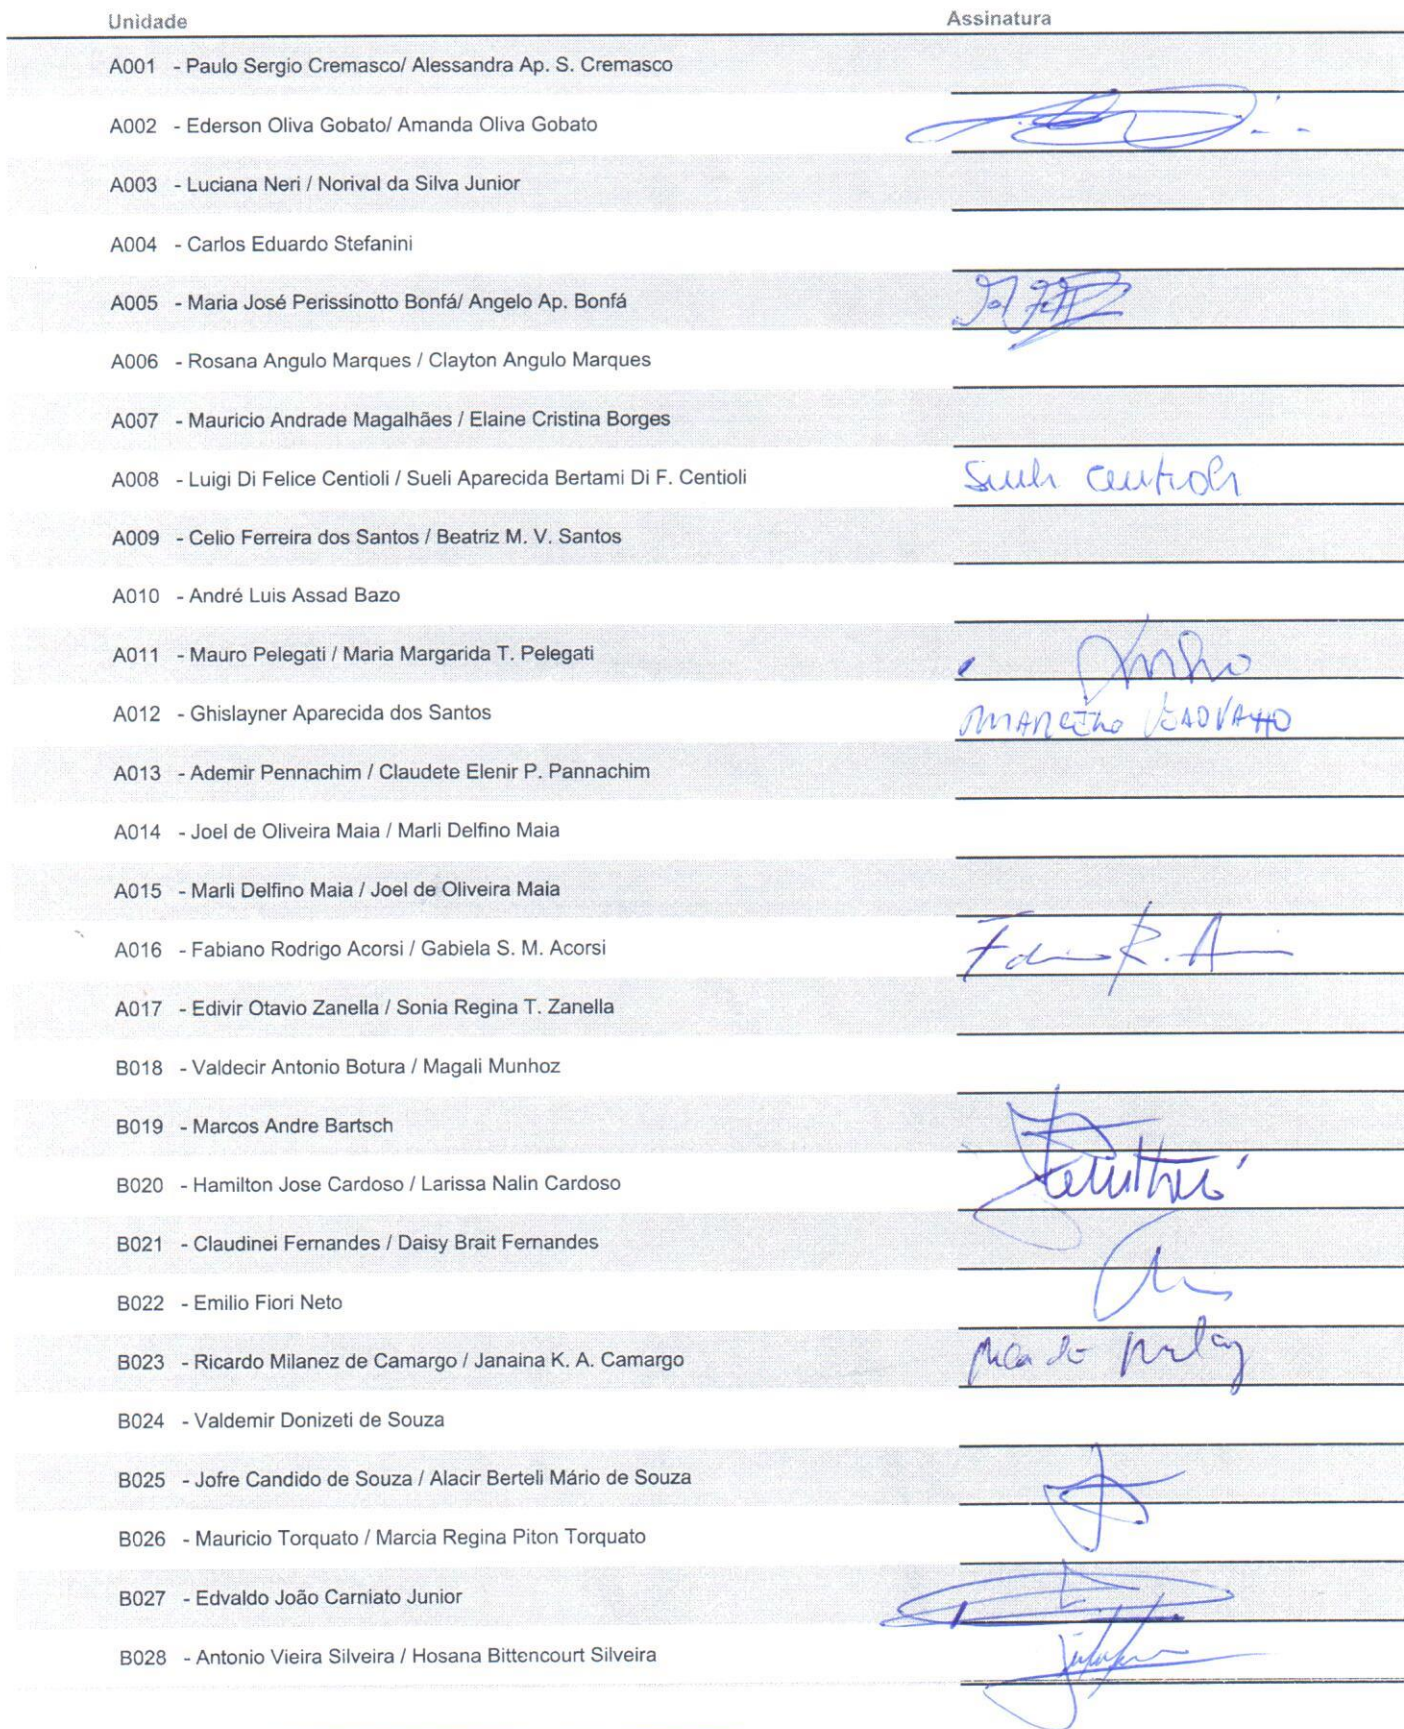 Unidade Assinatura
A001 - Paulo Sergio Cremasco/ Alessandra Ap. S. Cremasco
A002 - Ederson Oliva Gobato/ Amanda Oliva Gobato
A003 - Luciana Neri / Norival da Silva Junior
A004 - Carlos Eduardo Stefanini
A005 - Maria José Perissinotto Bonfá/ Angelo Ap. Bonfá
A006 - Rosana Angulo Marques / Clayton Angulo Marques
A007 - Mauricio Andrade Magalhães / Elaine Cristina Borges
A008 - Luigi Di Felice Centioli / Sueli Aparecida Bertami Di F. Centioli Sueli Centioli
A009 - Celio Ferreira dos Santos / Beatriz M. V. Santos
A010 - André Luis Assad Bazo
A011 - Mauro Pelegati / Maria Margarida T. Pelegati
A012 - Ghislayner Aparecida dos Santos
A013 - Ademir Pennachim / Claudete Elenir P. Pannachim
A014 - Joel de Oliveira Maia / Marli Delfino Maia
A015 - Marli Delfino Maia / Joel de Oliveira Maia
A016 - Fabiano Rodrigo Acorsi / Gabiela S. M. Acorsi
A017 - Edivir Otavio Zanella / Sonia Regina T. Zanella
B018 - Valdecir Antonio Botura / Magali Munhoz
B019 - Marcos Andre Bartsch
B020 - Hamilton Jose Cardoso / Larissa Nalin Cardoso
B021 - Claudinei Fernandes / Daisy Brait Fernandes
B022 - Emilio Fiori Neto
B023 - Ricardo Milanez de Camargo / Janaina K. A. Camargo
B024 - Valdemir Donizeti de Souza
B025 - Jofre Candido de Souza / Alacir Berteli Mário de Souza
B026 - Mauricio Torquato / Marcia Regina Piton Torquato
B027 - Edvaldo João Carniato Junior
B028 - Antonio Vieira Silveira / Hosana Bittencourt Silveira